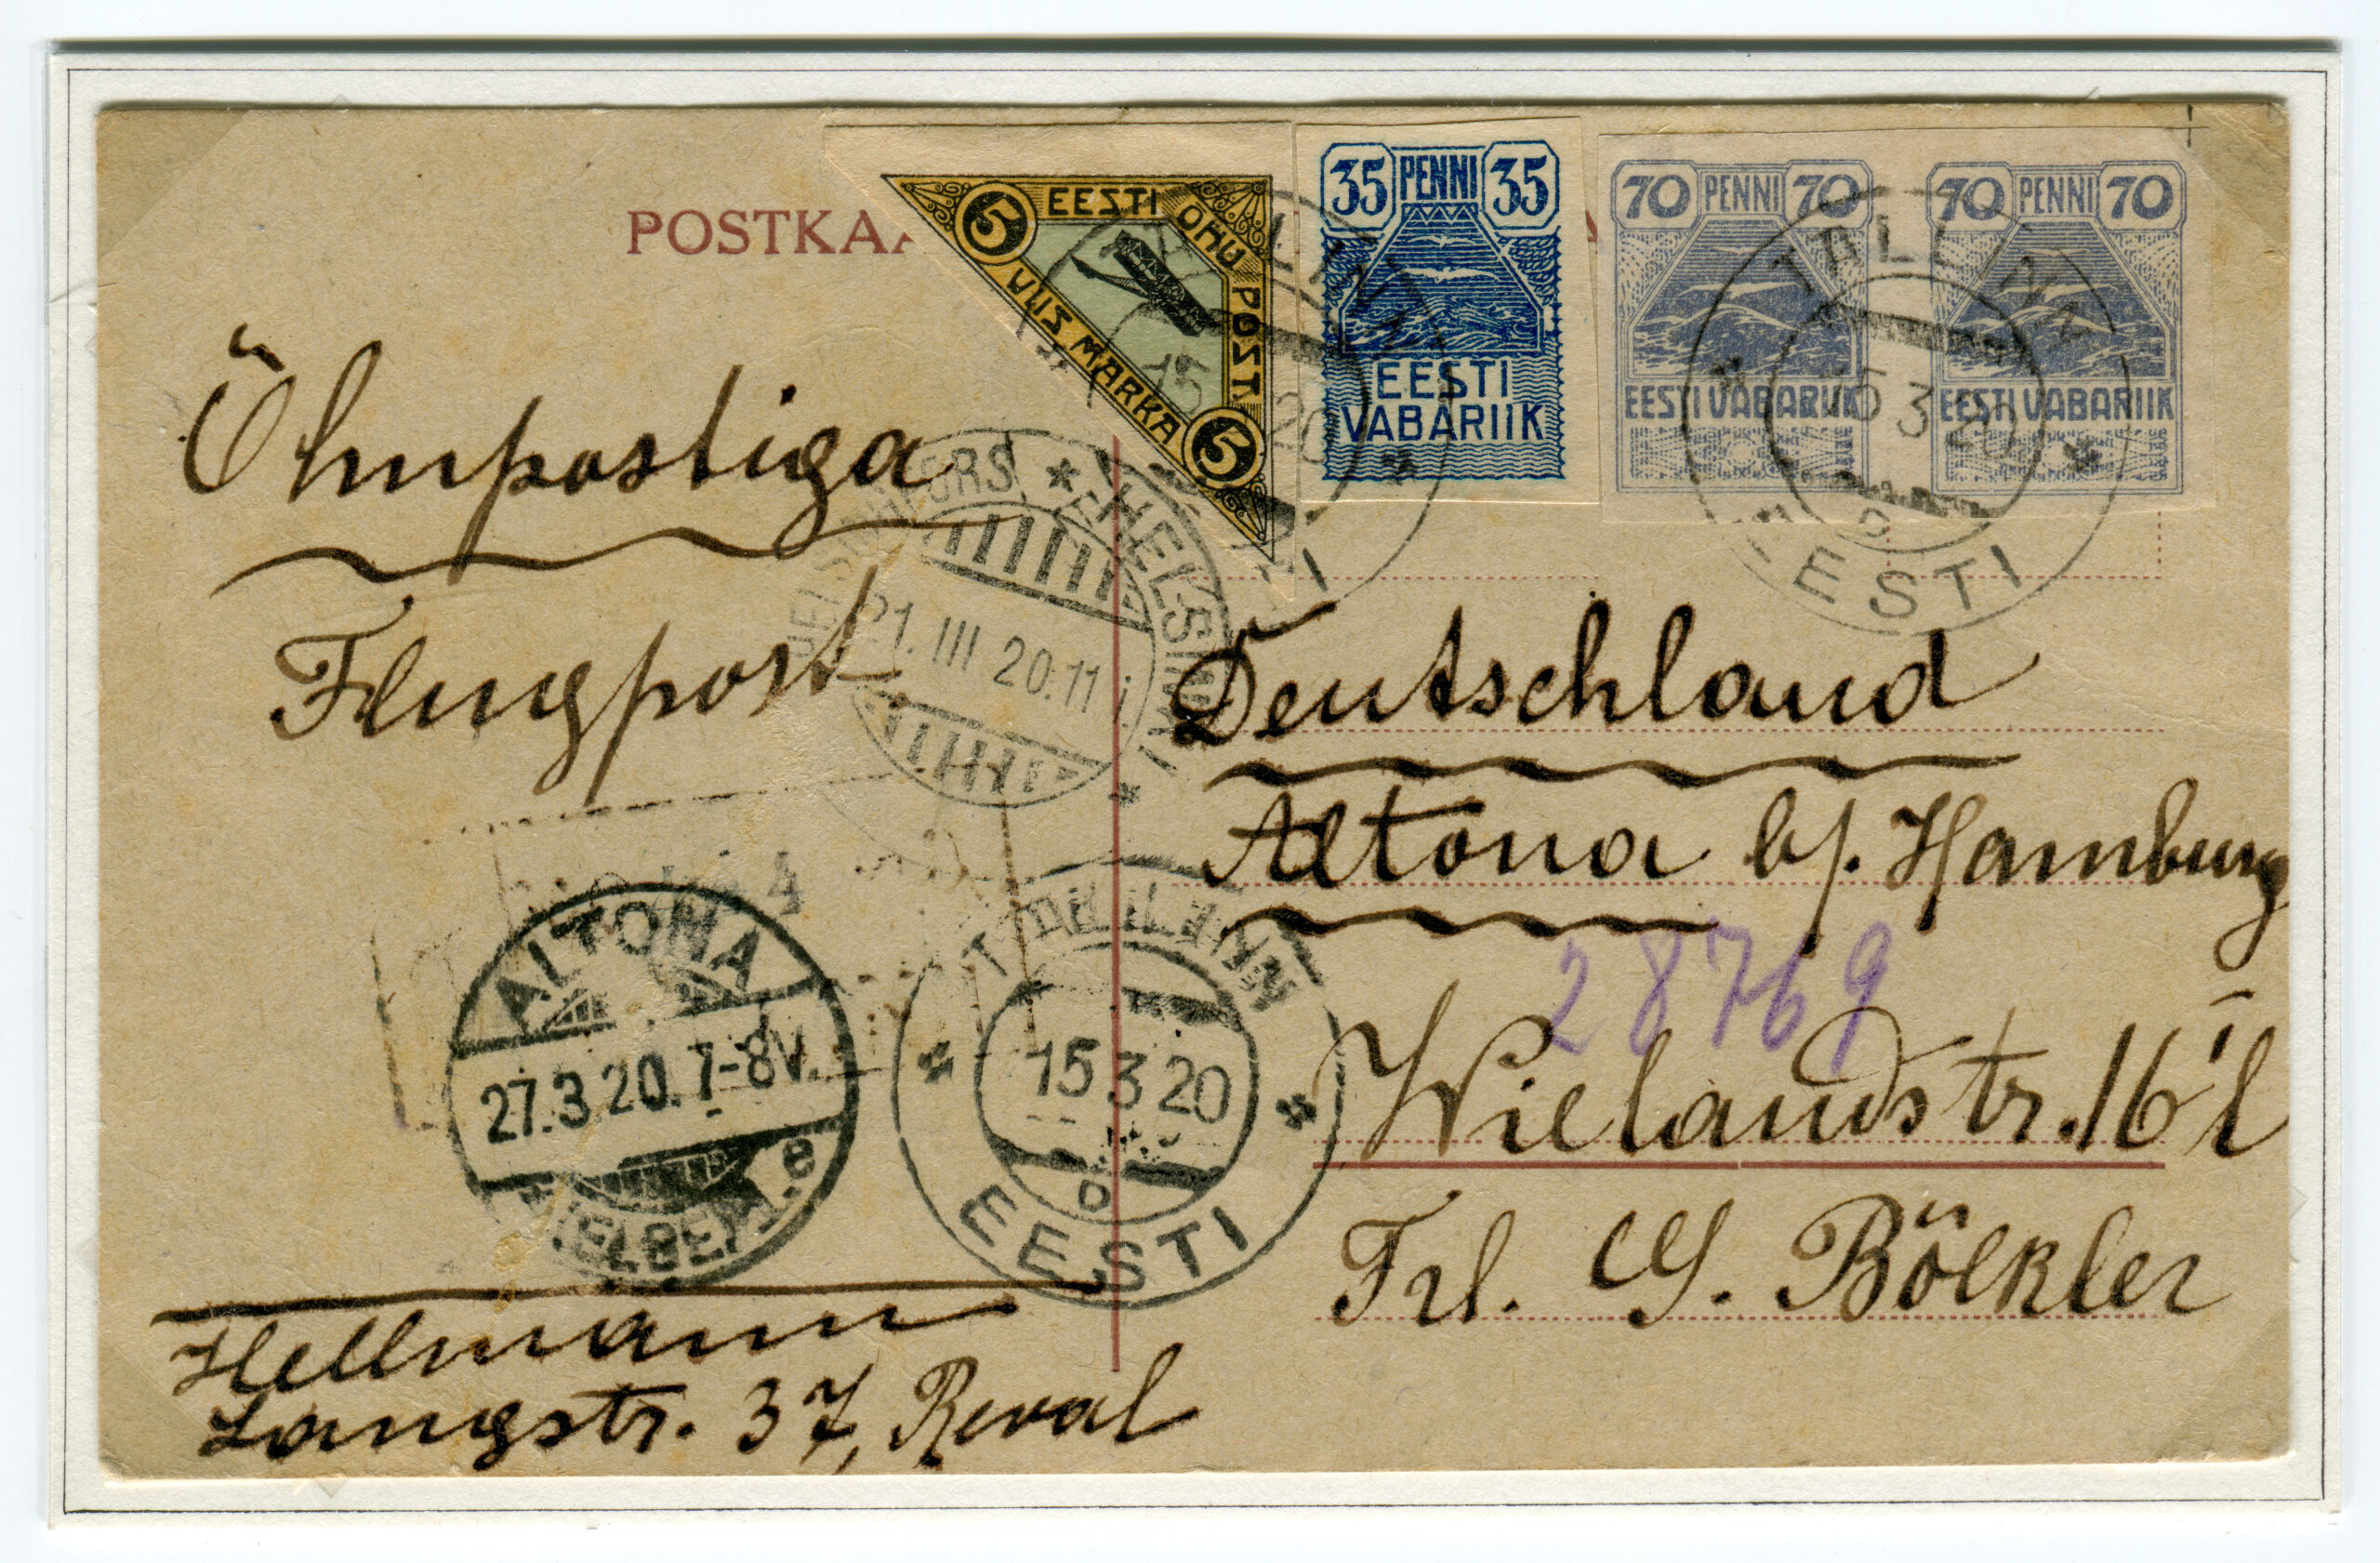 POSTKAA
5 EESTI ÕHU POST 5
VIIS MARKA
35 PENNI 35
EESTI
VABARIIK
70 PENNI 70
EESTI VABARIIK
70 PENNI 70
EESTI VABARIIK
TALLINN
15 3 20
D
EESTI
Õhupostiga
Flugpost
HELSINGFORS * HELSINKI
21.III 20.11
Deutschland
Altona b/. Hamburg
28769
Wielandstr. 16 I l
Frl. G. Bölkler
ALTONA
27.3.20. 7-8V.
(ELBE) 1. e
TALLINN
15 3 20
D
EESTI
Hellmann
Langstr. 37, Reval